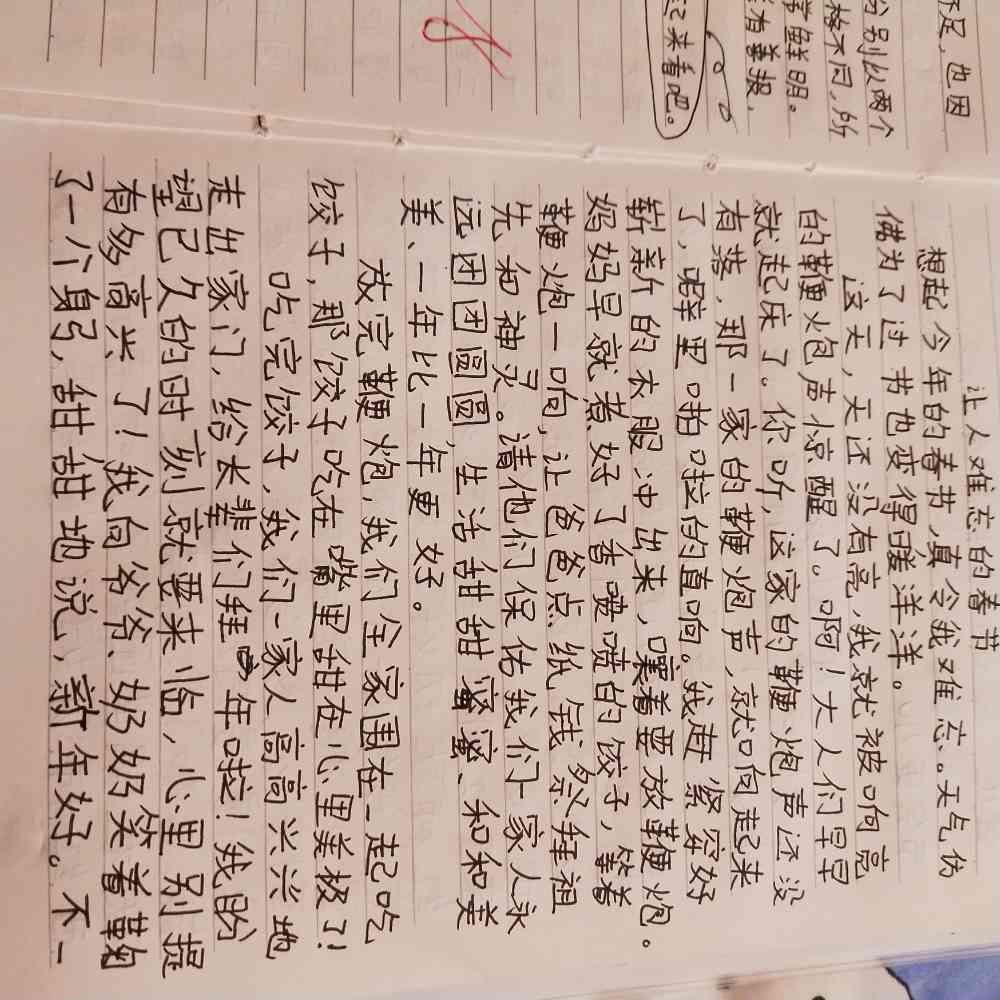 不足,也因
分别从两个
格不同,所
鲜明。
有善报,
起来着吧。
让人难忘的春节
想起今年的春节,真令我难忘。天气仿
佛为了过节也变得暖洋洋。
这天,天还没有亮,我就被响亮
的鞭炮声惊醒了。啊!大人们早早
就起床了。你听,这家的鞭炮声还没
有落,那一家的鞭炮声,就响起来
了,噼里啪啦的直响。我赶紧穿好
崭新的衣服冲出来,嚷着要放鞭炮。
妈妈早就煮好了香喷喷的饺子,等着
鞭炮一响,让爸爸点纸钱祭拜祖
先和神灵。请他们保佑我们一家人永
远团团圆圆,生活甜甜蜜蜜、和和美
美、一年比一年更好。
放完鞭炮,我们全家围在一起吃
饺子,那饺子吃在嘴里甜在心里美极了!
吃完饺子,我们一家人高高兴兴地
走出家门,给长辈们拜年啦!我盼
望已久的时刻就要来临,心里别提
有多高兴了!我向爷爷、奶奶笑着鞠
了一个躬,甜甜地说,新年好。不一